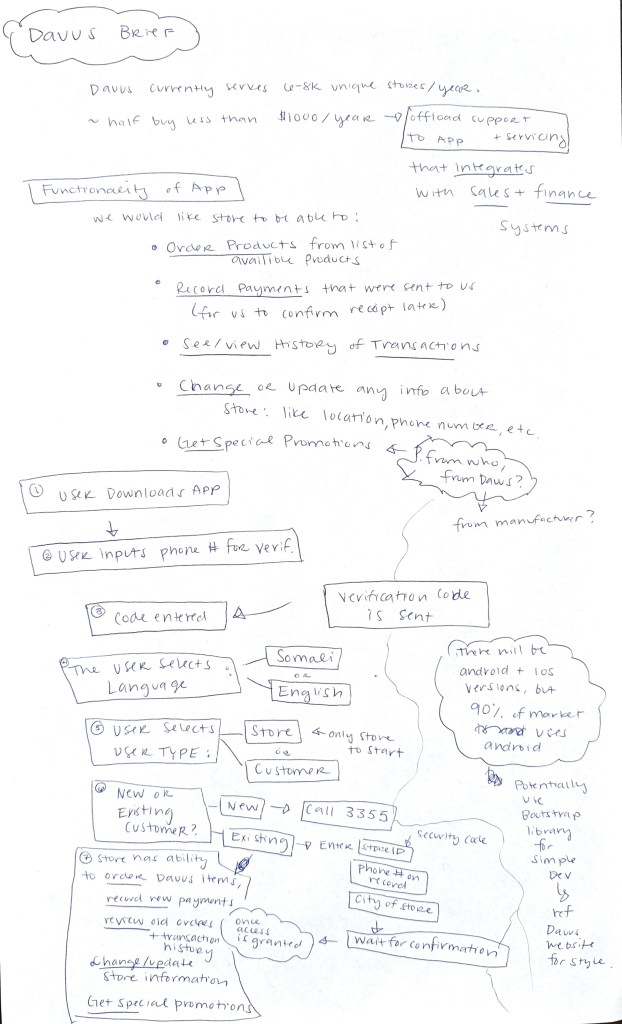 Davus Brief
Davus currently serves 6-8k unique stores/year.
~ half buy less than $1000/year → offload support
to App + servicing
that integrates
with sales + finance
systems
Functionality of App
we would like store to be able to:
• Order Products from list of
availible products
• Record Payments that were sent to us
(for us to confirm recipt later)
• See/view History of Transactions
• Change or update any info about
store: like location, phone number, etc.
• Get Special Promotions ←
? from who,
from Davus?
from manufacturer?
① User Downloads App
② User inputs phone # for verif.
Verification code
is sent
③ Code entered
④ The user selects :
Language
Somali
or
English
there will be
android + ios
versions, but
90% of market
uses
android
⑤ User selects
user type :
Store ← only store
to start
or
Customer
⑥ New or
Existing
customer?
New → Call 3355
Existing → Enter store ID
← security code
phone # on
record
City of store
wait for confirmation
once
access
is granted
⑦ Store has ability
to order Davus items,
record new payments
review old orders
+ transaction
history
change/update
store information
Get special promotions
Potentially
use
Bootstrap
library
for
simple
Dev
↳
ref
Davus
website
for style.